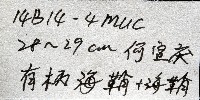 14B14-4MUC
28~29cm 何宜慶
有柄海鞘+海鞘